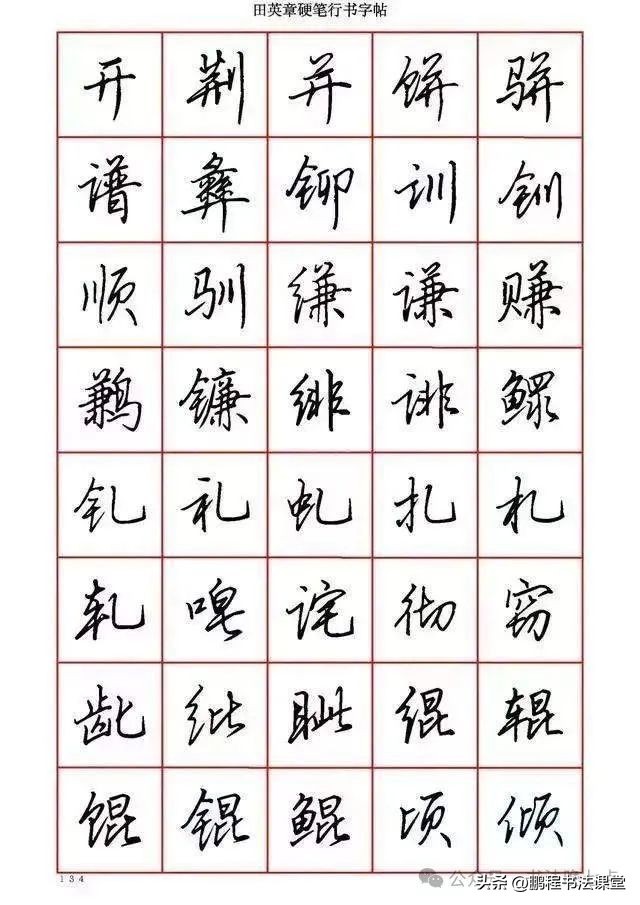 田英章硬笔行书字帖
开 荆 并 饼 骈
谱 彝 铆 训 钏
顺 驯 缣 谦 赚
鹣 镰 绯 诽 鳏
钆 礼 虬 扎 札
轧 嗅 诧 彻 窃
龀 纰 眦 绲 辊
馄 锟 鲲 顷 倾
134
头条 @鹏程书法课堂